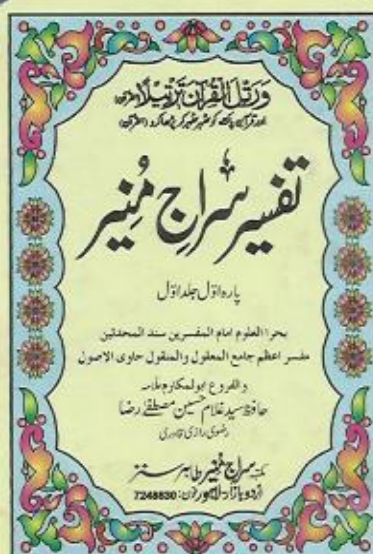 وَرَتِّلِ الْقُرْآنَ تَرْتِيلًا (القرآن)
اور قرآن پاک کو ٹھہر ٹھہر کر پڑھا کرو (القرآن)
تفسیر سراج مُنیر
پارہ اوّل جلد اوّل
بحرا العلوم امام المفسرین سند المحدثین
مفسر اعظم جامع المعقول والمنقول حاوی الاصول
والفروع ابوالمکارم علامہ
حافظ سید غلام حسین مصطفےٰ رضا
رضوی رازی قادری
مکتبہ سراج منیر طاہر سنز
اردو بازار لاہور فون: 7248630